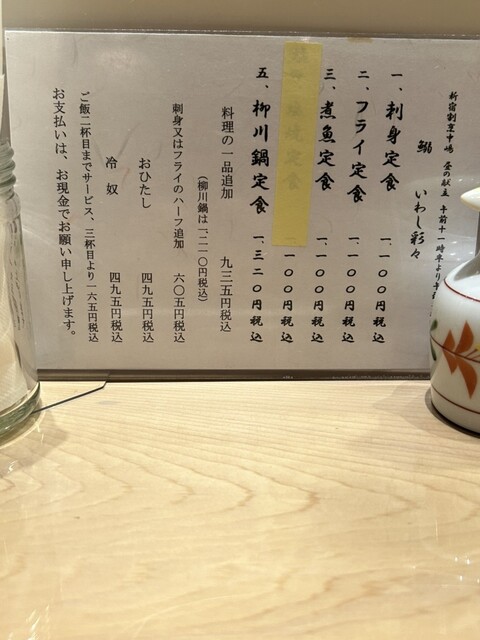 新宿割烹中嶋 昼の献立 午前十一時半より午
鰯 いわし彩々
一、刺身定食 一、一〇〇円税込
二、フライ定食 一、一〇〇円税込
三、煮魚定食 一、一〇〇円税込
定食 一、一〇〇円税込
五、柳川鍋定食 一、三二〇円税込
料理の一品追加 九三五円税込
(柳川鍋は一、二一〇円税込)
刺身又はフライのハーフ追加 六〇五円税込
おひたし 四九五円税込
冷奴 四九五円税込
ご飯二杯目までサービス、三杯目より一六五円税込
お支払いは、お現金でお願い申し上げます。